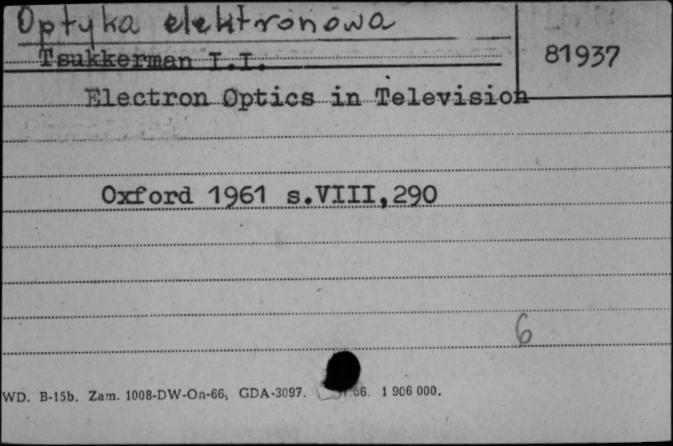 Optyka elektronowa
Tsukkerman I.I.
81937
Electron Optics in Television
Oxford 1961 s.VIII,290
6
WD. B-15b. Zam. 1008-DW-On-66, GDA-3097. 66. 1 906 000.